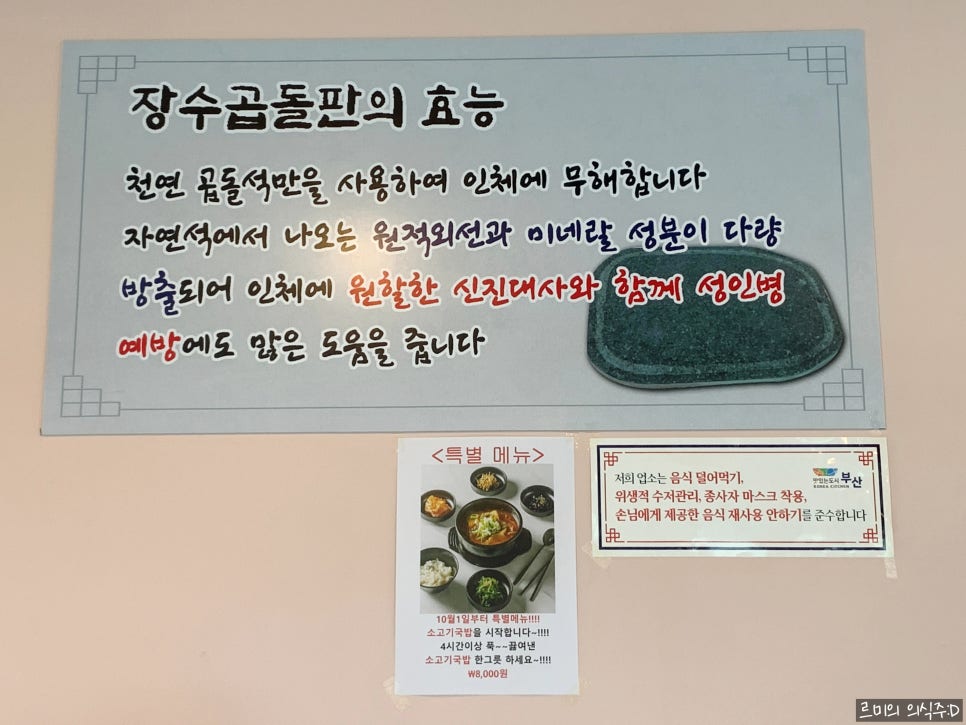 장수곱돌판의 효능
천연 곱돌석만을 사용하여 인체에 무해합니다
자연석에서 나오는 원적외선과 미네랄 성분이 다량
방출되어 인체에 원할한 신진대사와 함께 성인병
예방에도 많은 도움을 줍니다
<특별 메뉴>
10월1일부터 특별메뉴!!!!
소고기국밥을 시작합니다~!!!!
4시간이상 푹~~끓여낸
소고기국밥 한그릇 하세요~!!!!
₩8,000원
맛있는도시 부산
KOREA KITCHEN
저희 업소는 음식 덜어먹기,
위생적 수저관리, 종사자 마스크 착용,
손님에게 제공한 음식 재사용 안하기를 준수합니다
르미의 의식주:D